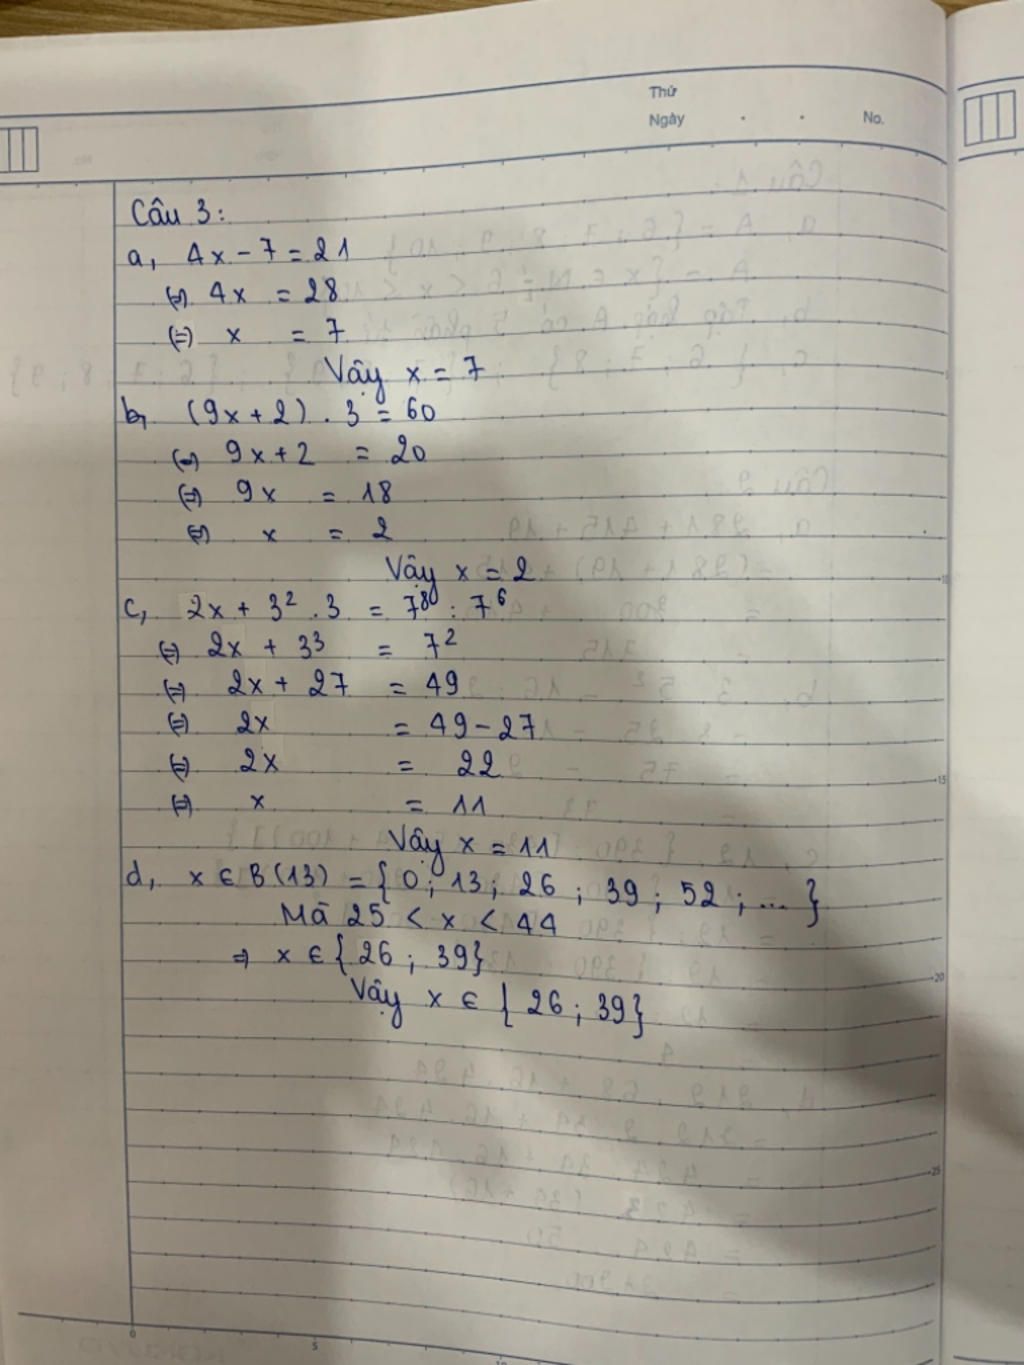 Thứ
Ngày . . No.
Câu 3:
a, 4x - 7 = 21
(=) 4x = 28
(=) x = 7
Vậy x = 7
b, (9x + 2) . 3 = 60
(=) 9x + 2 = 20
(=) 9x = 18
(=) x = 2
Vậy x = 2
c, 2x + 3² . 3 = 7⁸ : 7⁶
(=) 2x + 3³ = 7²
(=) 2x + 27 = 49
(=) 2x = 49 - 27
(=) 2x = 22
(=) x = 11
Vậy x = 11
d, x ∈ B(13) = { 0; 13; 26; 39; 52; ... }
Mà 25 < x < 44
⇒ x ∈ { 26; 39}
Vậy x ∈ { 26; 39}
10
15
20
25
0 5 10